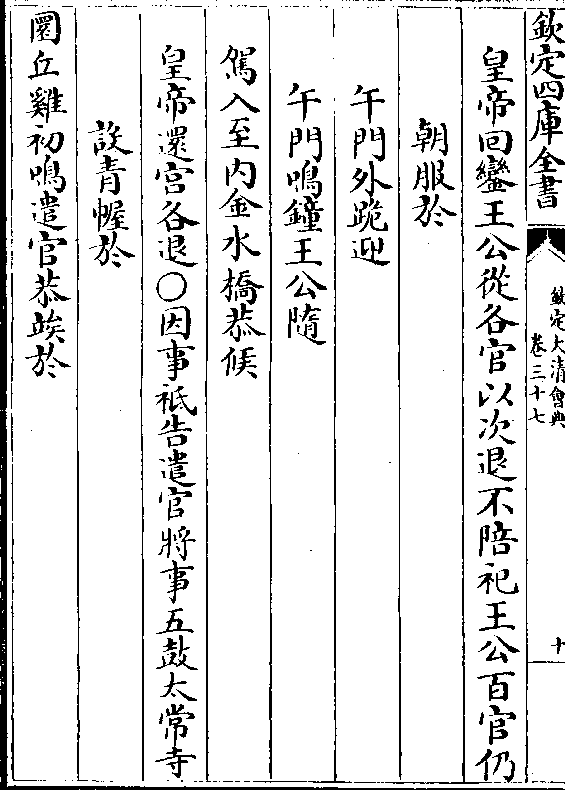 欽定四庫全書
欽定大清會典
卷三十七
十
皇帝回鑾王公從各官以次退不陪祀王公百官仍
朝服於
午門外跪迎
午門鳴鐘王公隨
駕入至内金水橋恭候
皇帝還宫各退〇因事祗告遣官將事五鼓太常寺
設青幄於
圜丘雞初鳴遣官恭竢於